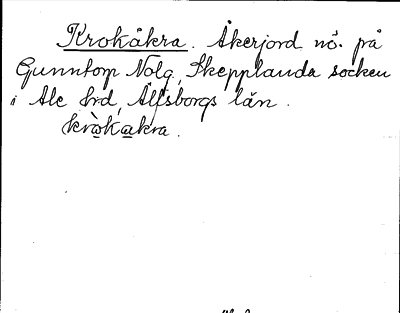 Krokåkra. Åkerjord nö. på
Gunntorp Nolg, Skepplanda socken
i Ale hrd, Älfsborgs län.
kròkakra.